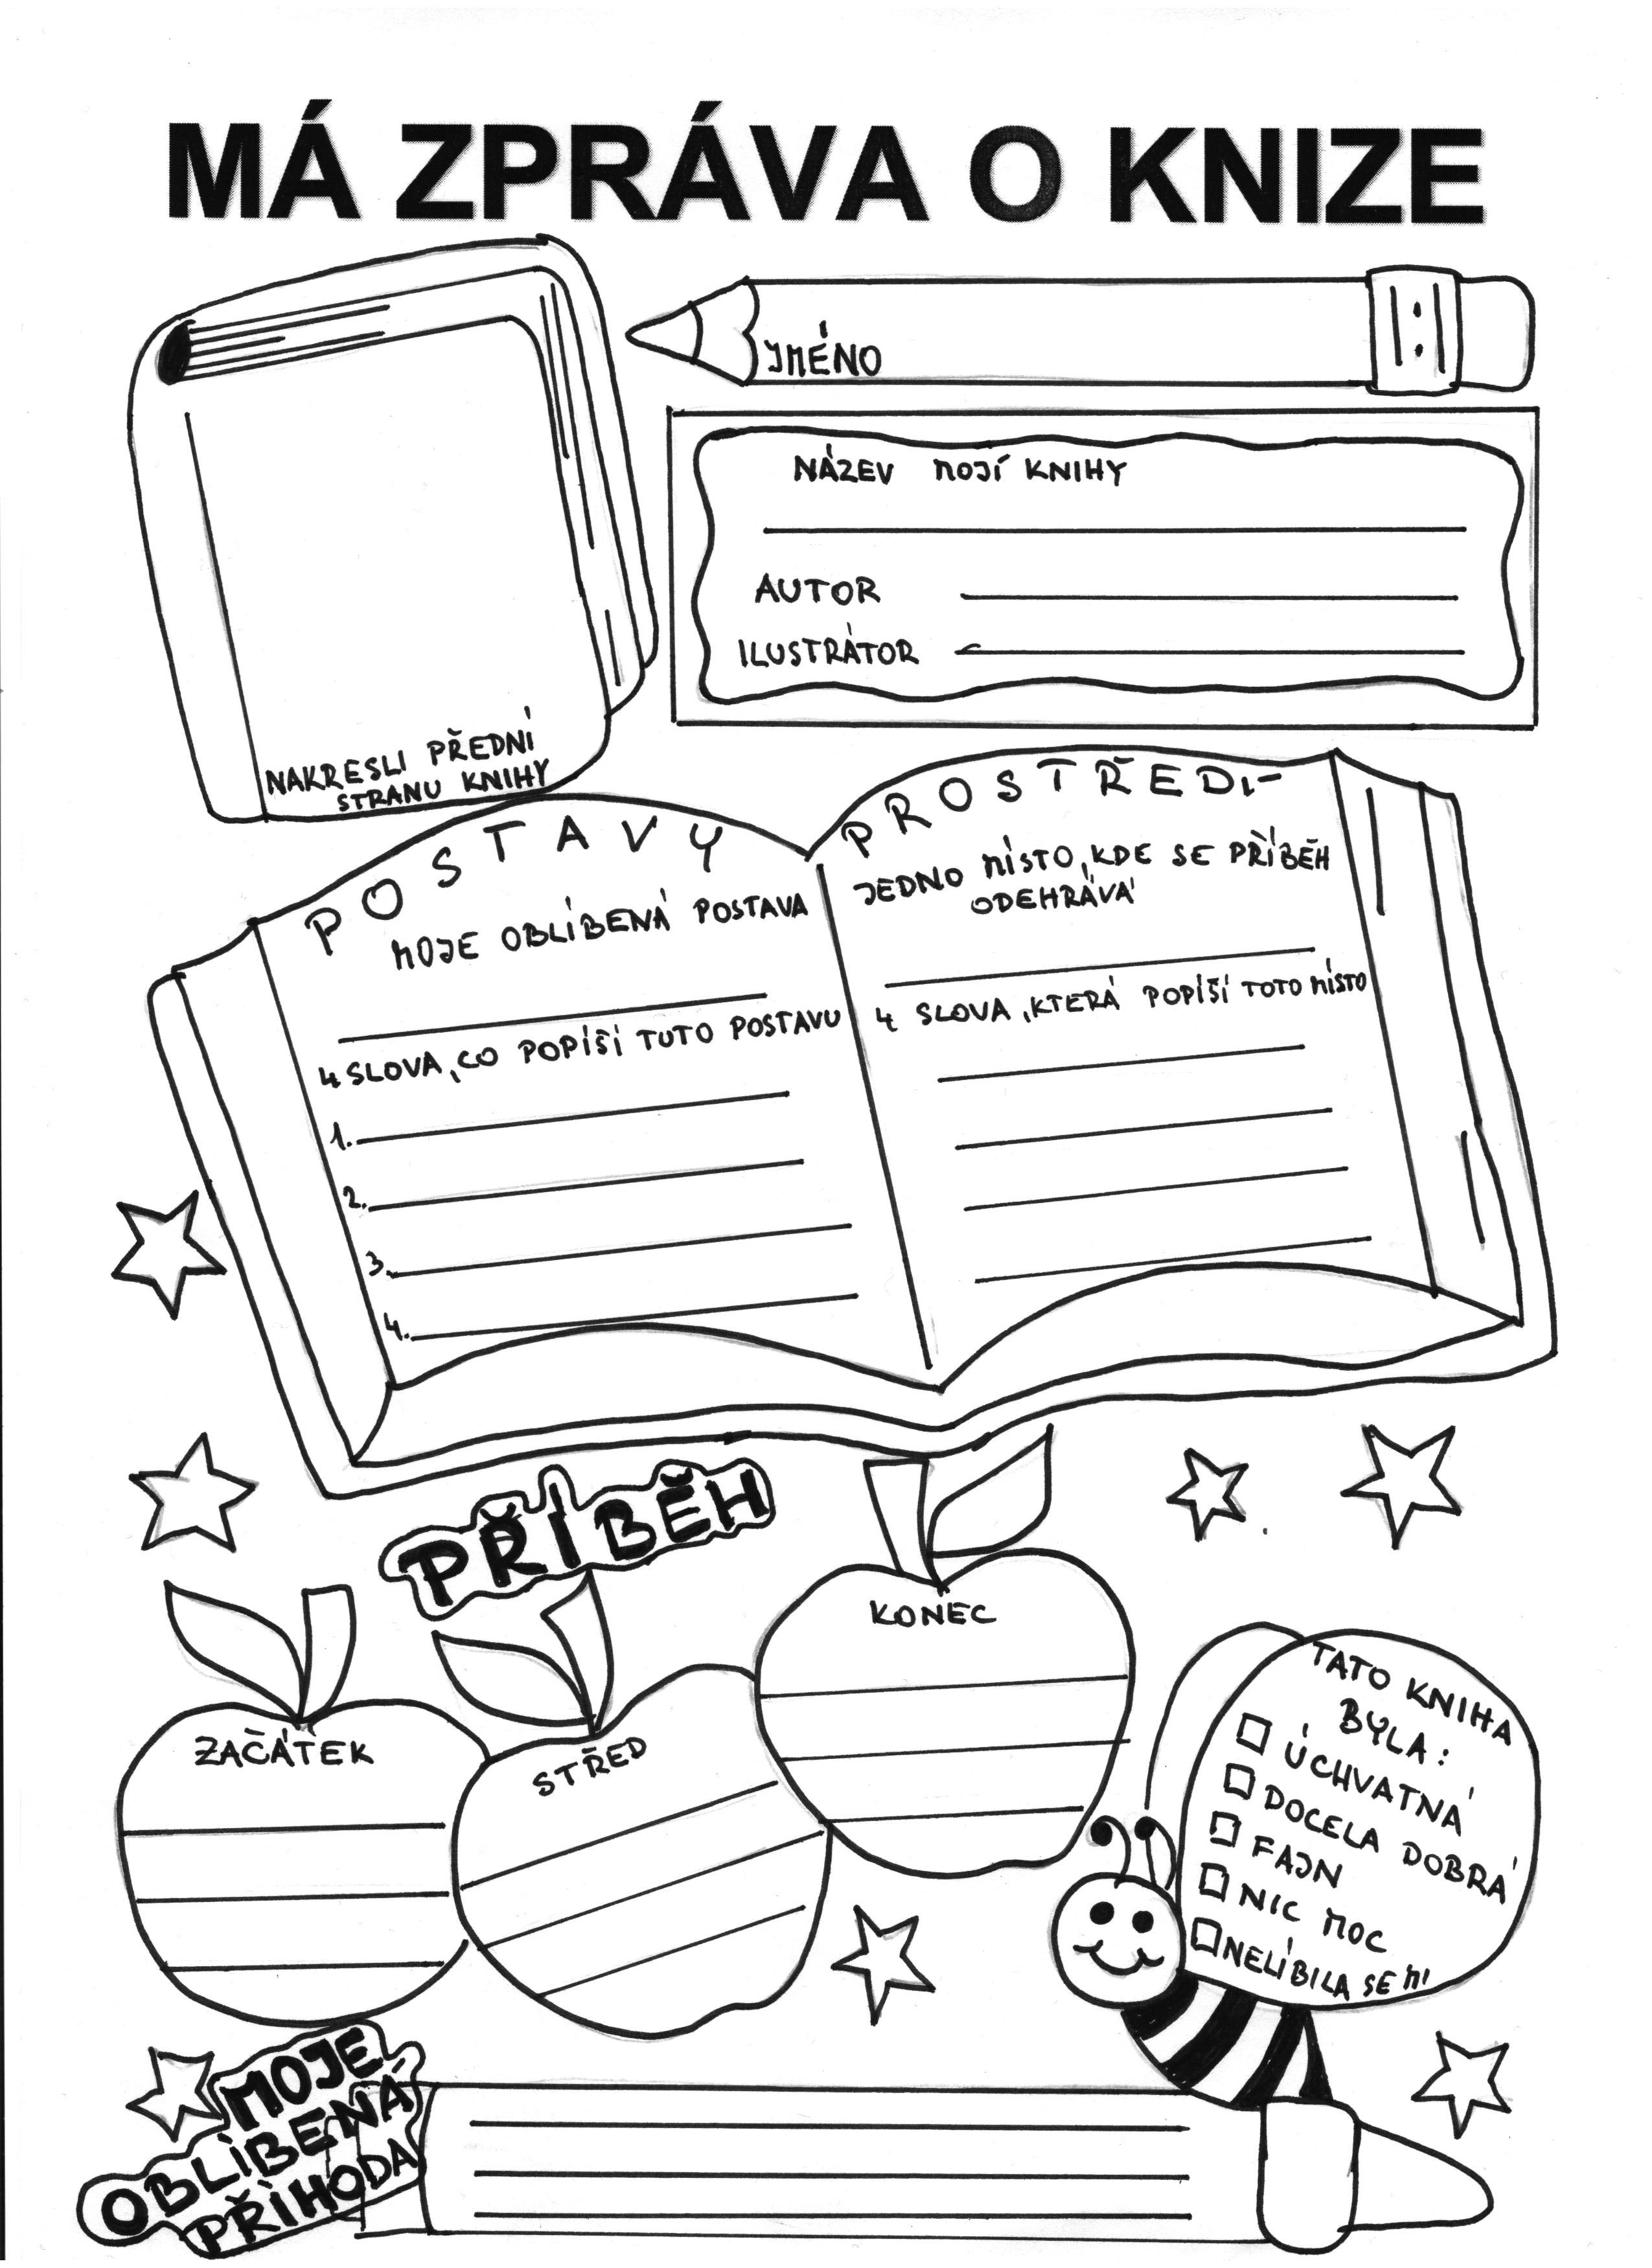 MÁ ZPRÁVA O KNIZE
JMÉNO
NÁZEV MOJÍ KNIHY
AUTOR
ILUSTRÁTOR
NAKRESLI PŘEDNÍ
STRANU KNIHY
POSTAVY
MOJE OBLÍBENÁ POSTAVA
4 SLOVA, CO POPÍŠÍ TUTO POSTAVU
1.
2.
3.
4.
PROSTŘEDÍ
JEDNO MÍSTO, KDE SE PŘÍBĚH
ODEHRÁVÁ
4 SLOVA, KTERÁ POPÍŠÍ TOTO MÍSTO
PŘÍBĚH
ZAČÁTEK
STŘED
KONEC
TATO KNIHA
BYLA:
ÚCHVATNÁ
DOCELA DOBRÁ
FAJN
NIC MOC
NELÍBILA SE MI
MOJE
OBLÍBENÁ
PŘÍHODA